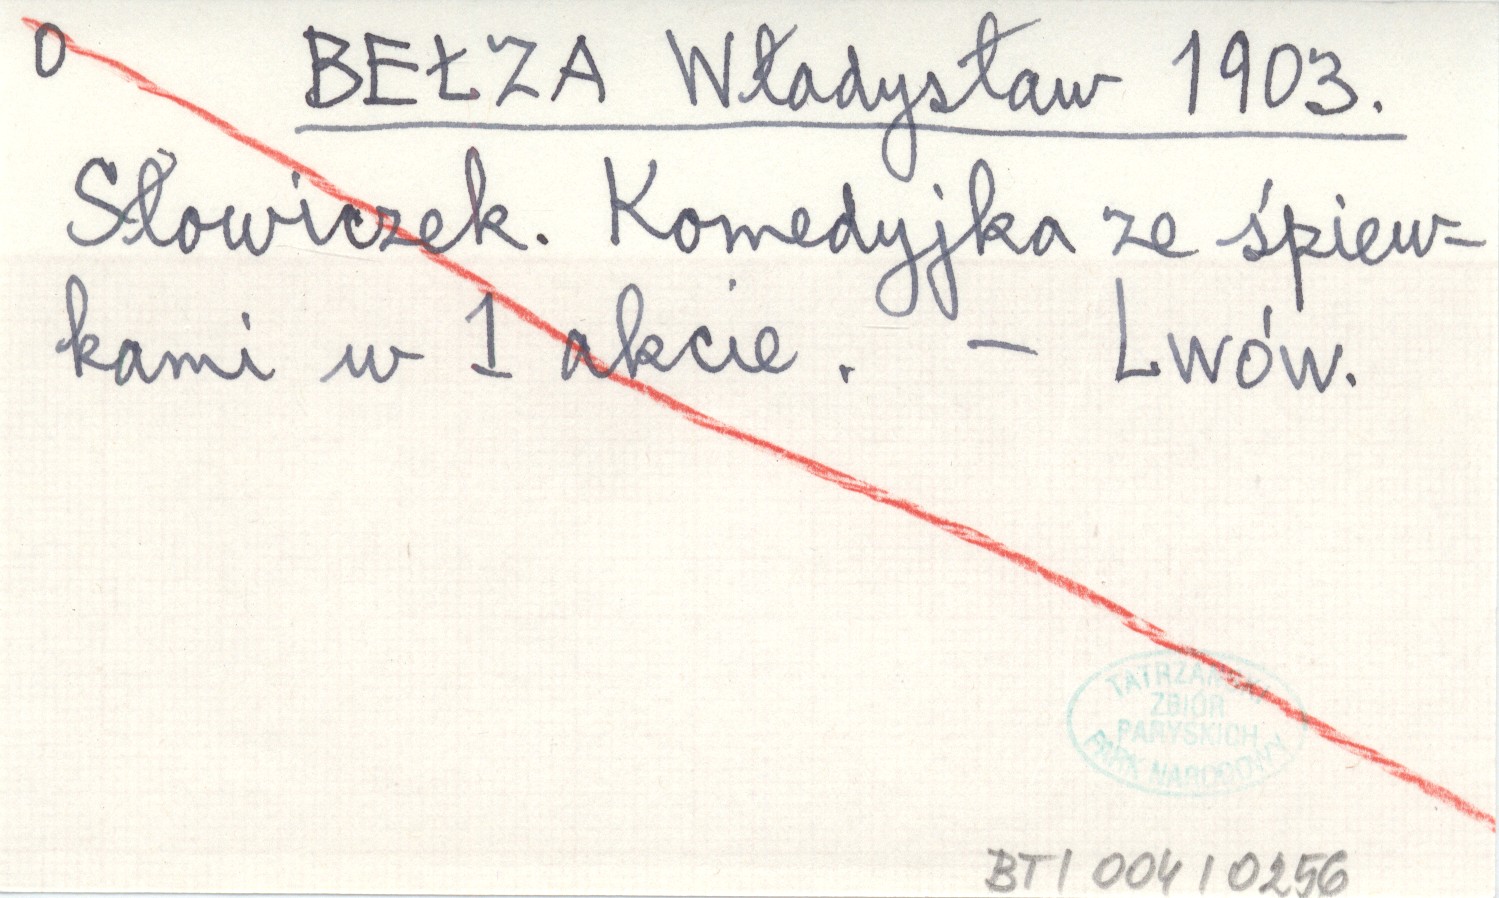 0 BEŁZA Władysław 1903.
Słowiczek. Komedyjka ze śpiew=
kami w 1 akcie. — Lwów.
TATRZAŃSKI
ZBIÓR
PARYSKICH
PARK NARODOWY
BT / 004 / 0256